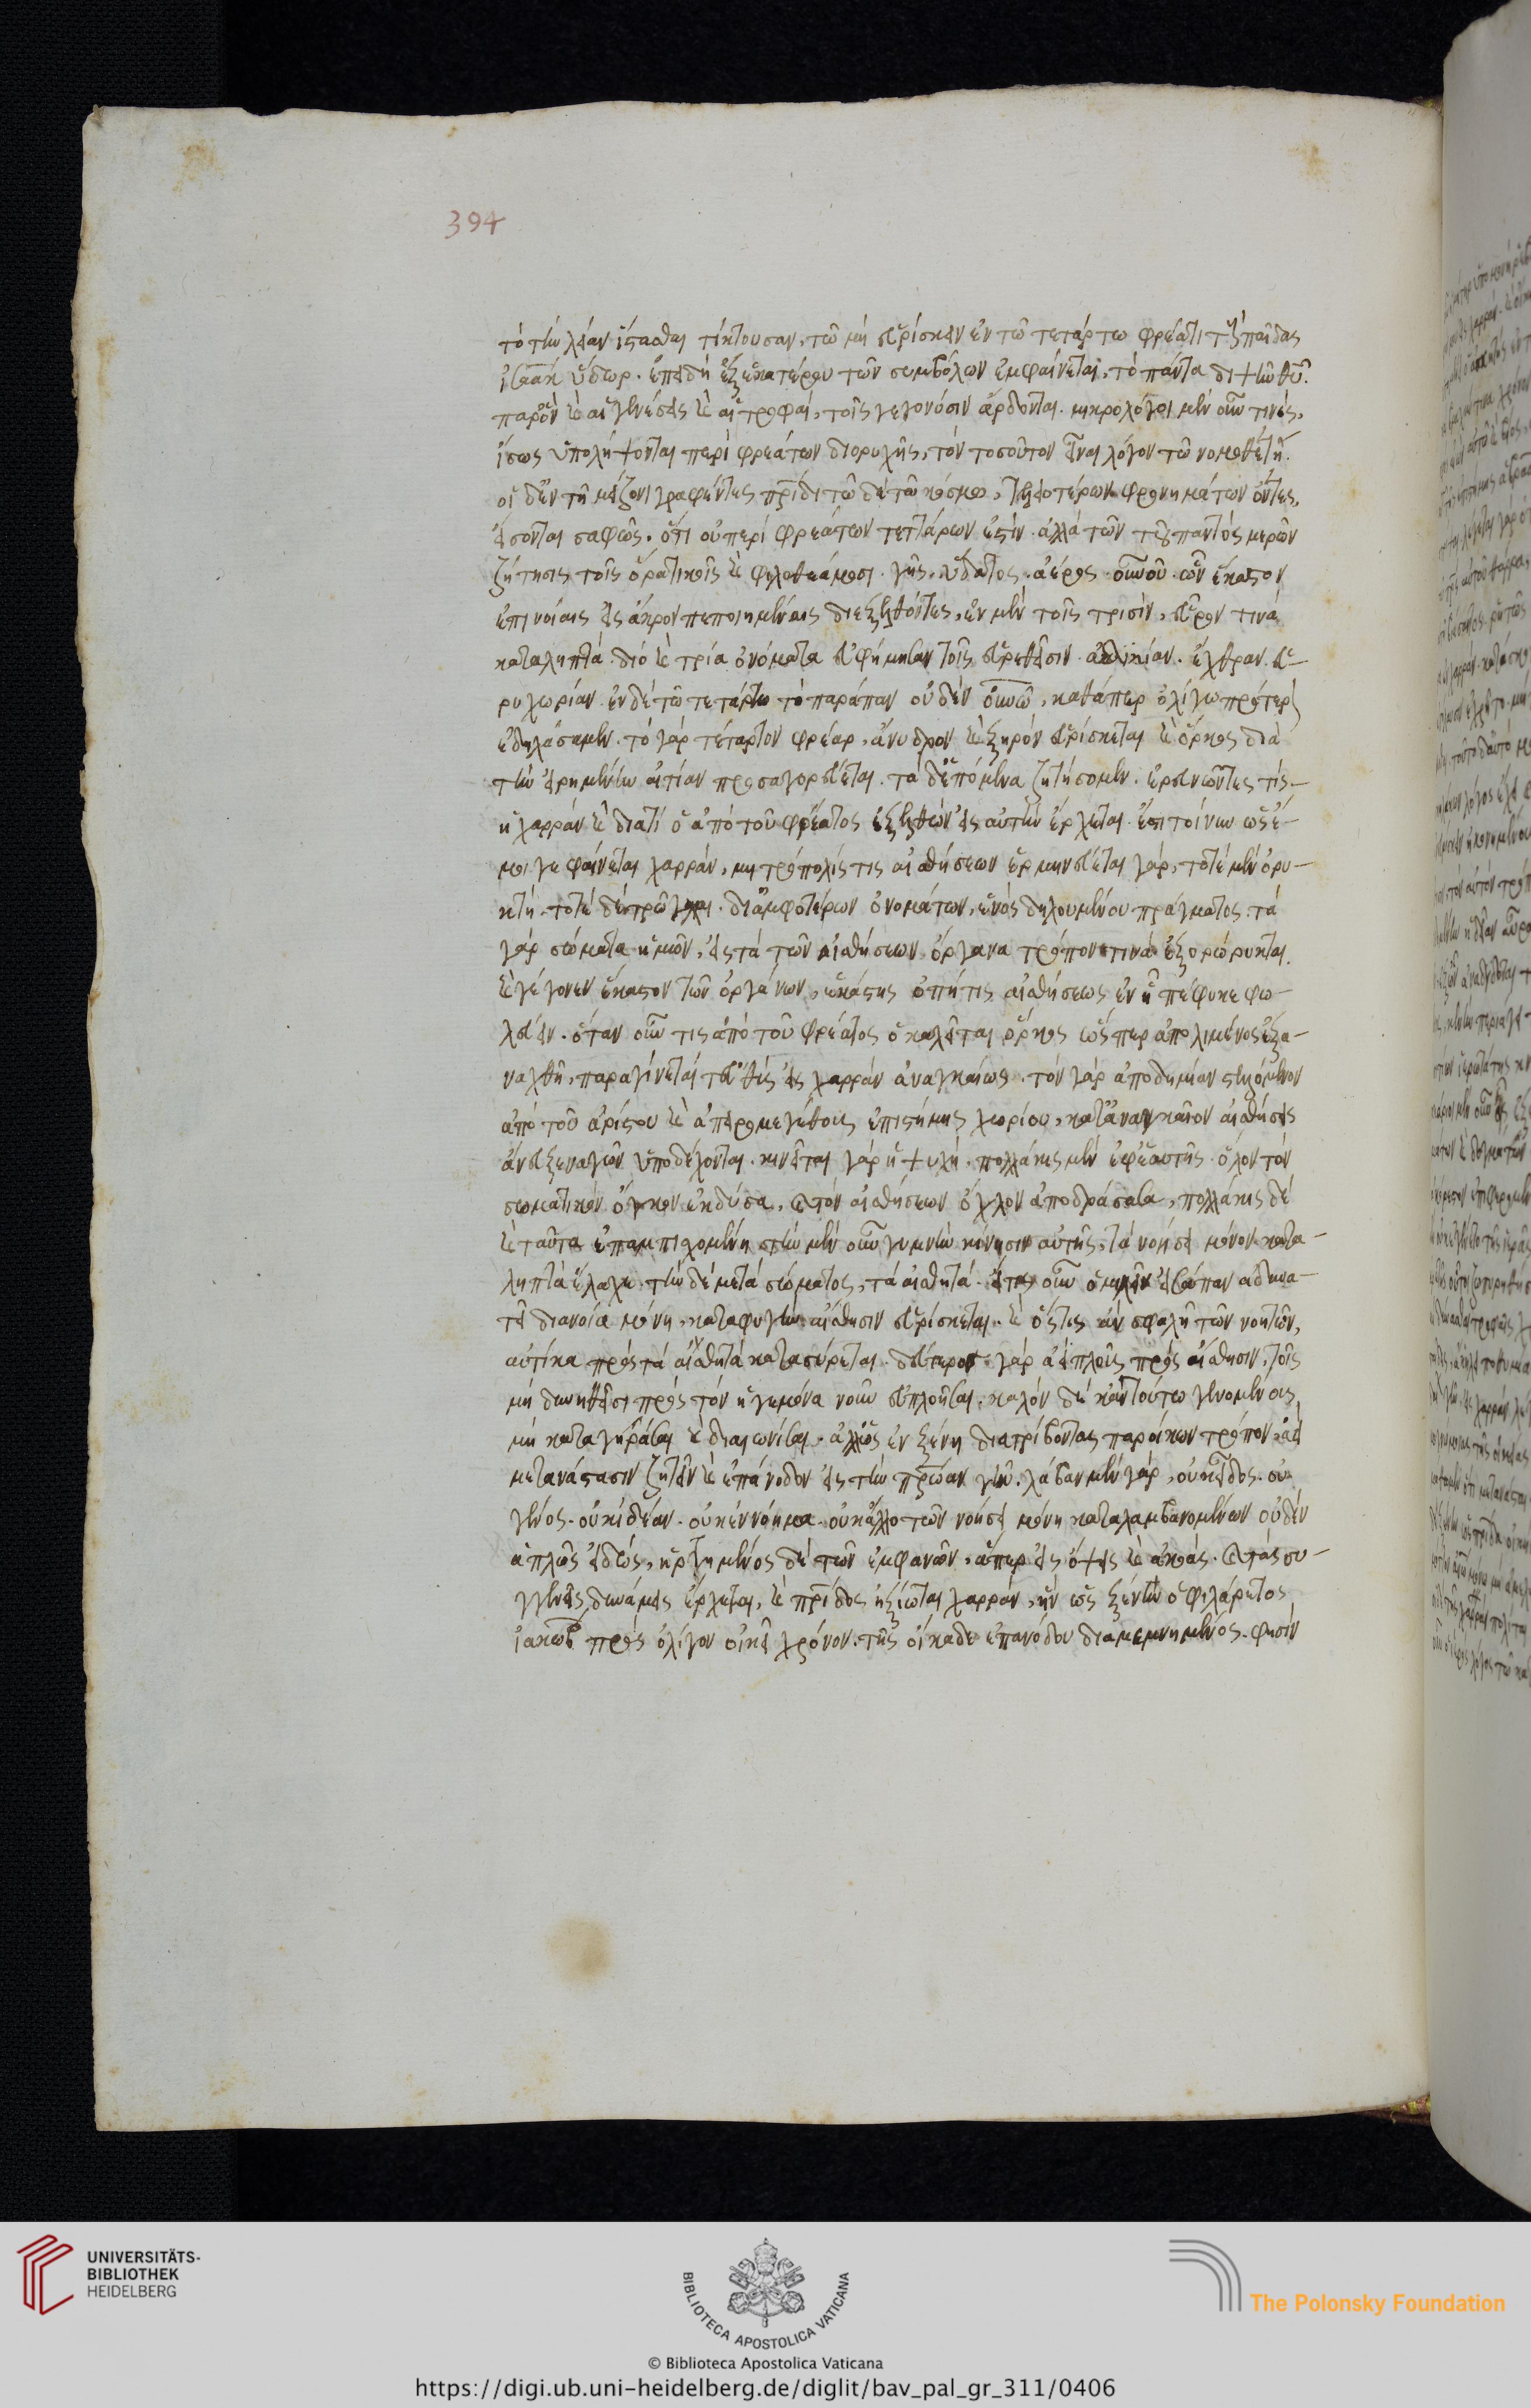 394
τὸ τὴν λείαν ἵστασθαι τίκτουσαν, τῶ μὴ εὑρίσκειν ἐν τῶ τετάρτω φρέατι τοὺς παῖδας
ἰσαὰκ ὕδωρ. ἐπειδὴ ἐξ ἑκατέρου τῶν συμβόλων ἐμφαίνεται, τὸ πάντα διψῆν θῦ.
παρ' ὃν καὶ αἱ γενέσεις καὶ αἱ τροφαὶ, τοῖς γεγονόσιν ἄρδονται. μικρολόγοι μὲν οὖν τινὲς,
ἴσως ὑπολήψονται περὶ φρεάτων διορυχῆς, τὸν τοσοῦτον εἶναι λόγον τῶ νομοθέτη.
οἱ δ' ἐν τῆ μείζονι γραφέντες πρίδι τῶδε τῶ κόσμω, τελειοτέρων φρονημάτων ὄντες,
εἴσονται σαφῶς. ὅτι οὐ περὶ φρεάτων τεττάρων ἐστὶν. ἀλλὰ τῶν τοῦ παντὸς μερῶν
ζήτησις τοῖς ὁρατικοῖς καὶ φιλοθεάμοσι. γῆς. ὕδατος. ἀέρος. οὐνοῦ. ὧν ἕκαστον
ἐπινοίαις εἰς ἄκρον πεποιημέναις διεξελθόντες, ἐν μὲν τοῖς τρισὶν, εὗρόν τινα
καταληπτὰ. διὸ καὶ τρία ὀνόματα εὐφήμησαν τοῖς εὑρεθεῖσιν. ἀδικίαν. ἔχθραν. εὐ-
ρυχωρίαν. ἐν δὲ τῶ τετάρτω τὸ παράπαν οὐδὲν οὐνῶ, καθάπερ ὀλίγω πρότερον
ἐδηλώσαμεν. τὸ γὰρ τέταρτον φρέαρ, ἄνυδρον καὶ ξηρὸν εὑρίσκεται καὶ ὅρκος διὰ
τὴν εἰρημένην αἰτίαν προσαγορεύεται. τὰ δ' ἑπόμενα ζητήσομεν. ἐρευνῶντες τίς
ἡ χαρρὰν καὶ διατί ὁ ἀπὸ τοῦ φρέατος ἐξελθὼν εἰς αὐτὴν ἔρχεται. ἔστι τοίνυν ὡς ἔ-
μοι γε φαίνεται χαρρὰν, μητρόπολίς τις αἰσθήσεων ἑρμηνεύεται γὰρ, τοτὲ μὲν ὀρυ-
κτὴ. τοτὲ δὲ τρῶγλαι. δι' ἀμφοτέρων ὀνομάτων, ἑνὸς δηλουμένου πράγματος. τὰ
γὰρ σώματα ἡμῶν, εἰς τὰ τῶν αἰσθήσεων ὄργανα τρόπον τινὰ ἐξορώρυκται.
καὶ γέγονεν ἕκαστον τῶν ὀργάνων, ἑκάστης ὀπή τις αἰσθήσεως ἐν ἧ πέφυκε φω-
λεύειν. ὅταν οὖν τις ἀπὸ τοῦ φρέατος ὃ καλεῖται ὅρκος ὥσπερ ἀπὸ λιμένος ἐξα-
ναχθῆ, παραγίνεται εὐθὺς εἰς χαρρὰν ἀναγκαίως. τὸν γὰρ ἀποδημίαν στελόμενον
ἀπὸ τοῦ ἀρίστου καὶ ἀπειρομεγέθους ἐπιστήμης χωρίου, κατ' ἀναγκαῖον αἰσθήσεις
ἄνευ ξεναγῶν ὑποδέχονται. κινεῖται γὰρ ἡ ψυχὴ. πολλάκις μὲν ἐφ' ἑαυτῆς. ὅλον τὸν
σωματικὸν ὄγκον ἐκδῦσα, καὶ τὸν αἰσθήσεων ὄχλον ἀποδράσασα, πολλάκις δὲ
καὶ ταῦτα ἐπαμπισχομένη τὴν μὲν οὖν γυμνὴν κίνησιν αὐτῆς, τὰ νοήσει μόνον κατα-
ληπτὰ ἔλαχε. τὴν δὲ μετὰ σώματος, τὰ αἰσθητὰ. εἴ τις οὖν ὁμιλεῖν εἰσάπαν ἀδυνα-
τεῖ διανοία μόνη, καταφυγὴν αἴσθησιν εὑρίσκεται. καὶ ὅστις ἂν σφαλῆ τῶν νοητῶν,
αὐτίκα πρὸς τὰ αἰσθητὰ κατασύρεται. δεύτερος γὰρ ἀεὶ πλοῦς πρὸς αἴσθησιν, τοῖς
μὴ δυνηθεῖσι πρὸς τὸν ἡγεμόνα νοῦν εὐπλοῆσαι. καλὸν δὲ κἀν τούτω γενομένοις,
μὴ καταγηράσαι καὶ διαιωνίσαι. ἀλλ' ὡς ἐν ξένη διατρίβοντας παροίκων τρόπον ἀεὶ
μετανάστασιν ζητεῖν καὶ ἐπάνοδον εἰς τὴν πρώαν γῆν. λάβαν μὲν γὰρ, οὐκ εἶδος. οὐ
γένος. οὐκ ἰδέαν. οὐκ ἐννόημα. οὐκ ἄλλο τῶν νοήσει μόνη καταλαμβανομένων οὐδὲν
ἁπλῶς εἰδὼς, ἠρτημένος δὲ τῶν ἐμφανῶν, ἅπερ εἰς ὄψεις καὶ ἀκοάς. καὶ τὰς συ-
γγενεῖς δυνάμεις ἔρχεται, καὶ πρίδος ἠξίωται χαρρὰν, ἣν ὡς ξένην ὁ φιλάρετος
ἰακὼβ πρὸς ὀλίγον οἰκεῖ χρόνον. τῆς οἴκαδε ἐπανόδου διαμεμνημένος. φησὶν
UNIVERSITÄTS-
BIBLIOTHEK
HEIDELBERG
BIBLIOTECA APOSTOLICA VATICANA
The Polonsky Foundation
© Biblioteca Apostolica Vaticana
https://digi.ub.uni-heidelberg.de/diglit/bav_pal_gr_311/0406